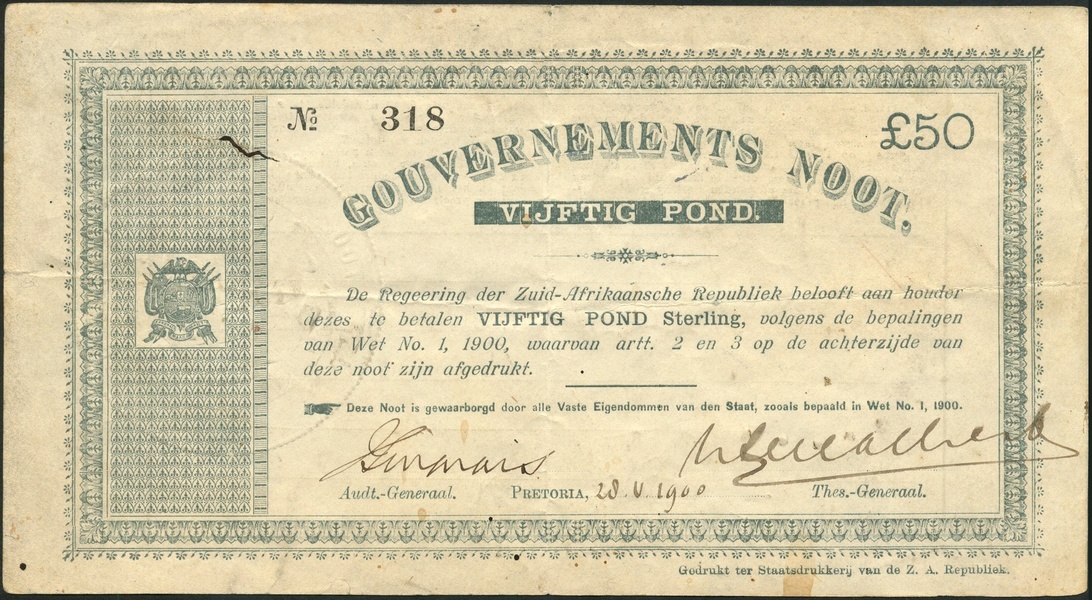 № 318 £50
GOUVERNEMENTS NOOT.
VIJFTIG POND.
De Regeering der Zuid-Afrikaansche Republiek belooft aan houder
dezes te betalen VIJFTIG POND Sterling, volgens de bepalingen
van Wet No. 1, 1900, waarvan artt. 2 en 3 op de achterzijde van
deze noot zijn afgedrukt.
Deze Noot is gewaarborgd door alle Vaste Eigendommen van den Staat, zooals bepaald in Wet No. 1, 1900.
Audt.-Generaal. PRETORIA, 28.V.1900 Thes.-Generaal.
Gedrukt ter Staatsdrukkerij van de Z. A. Republiek.